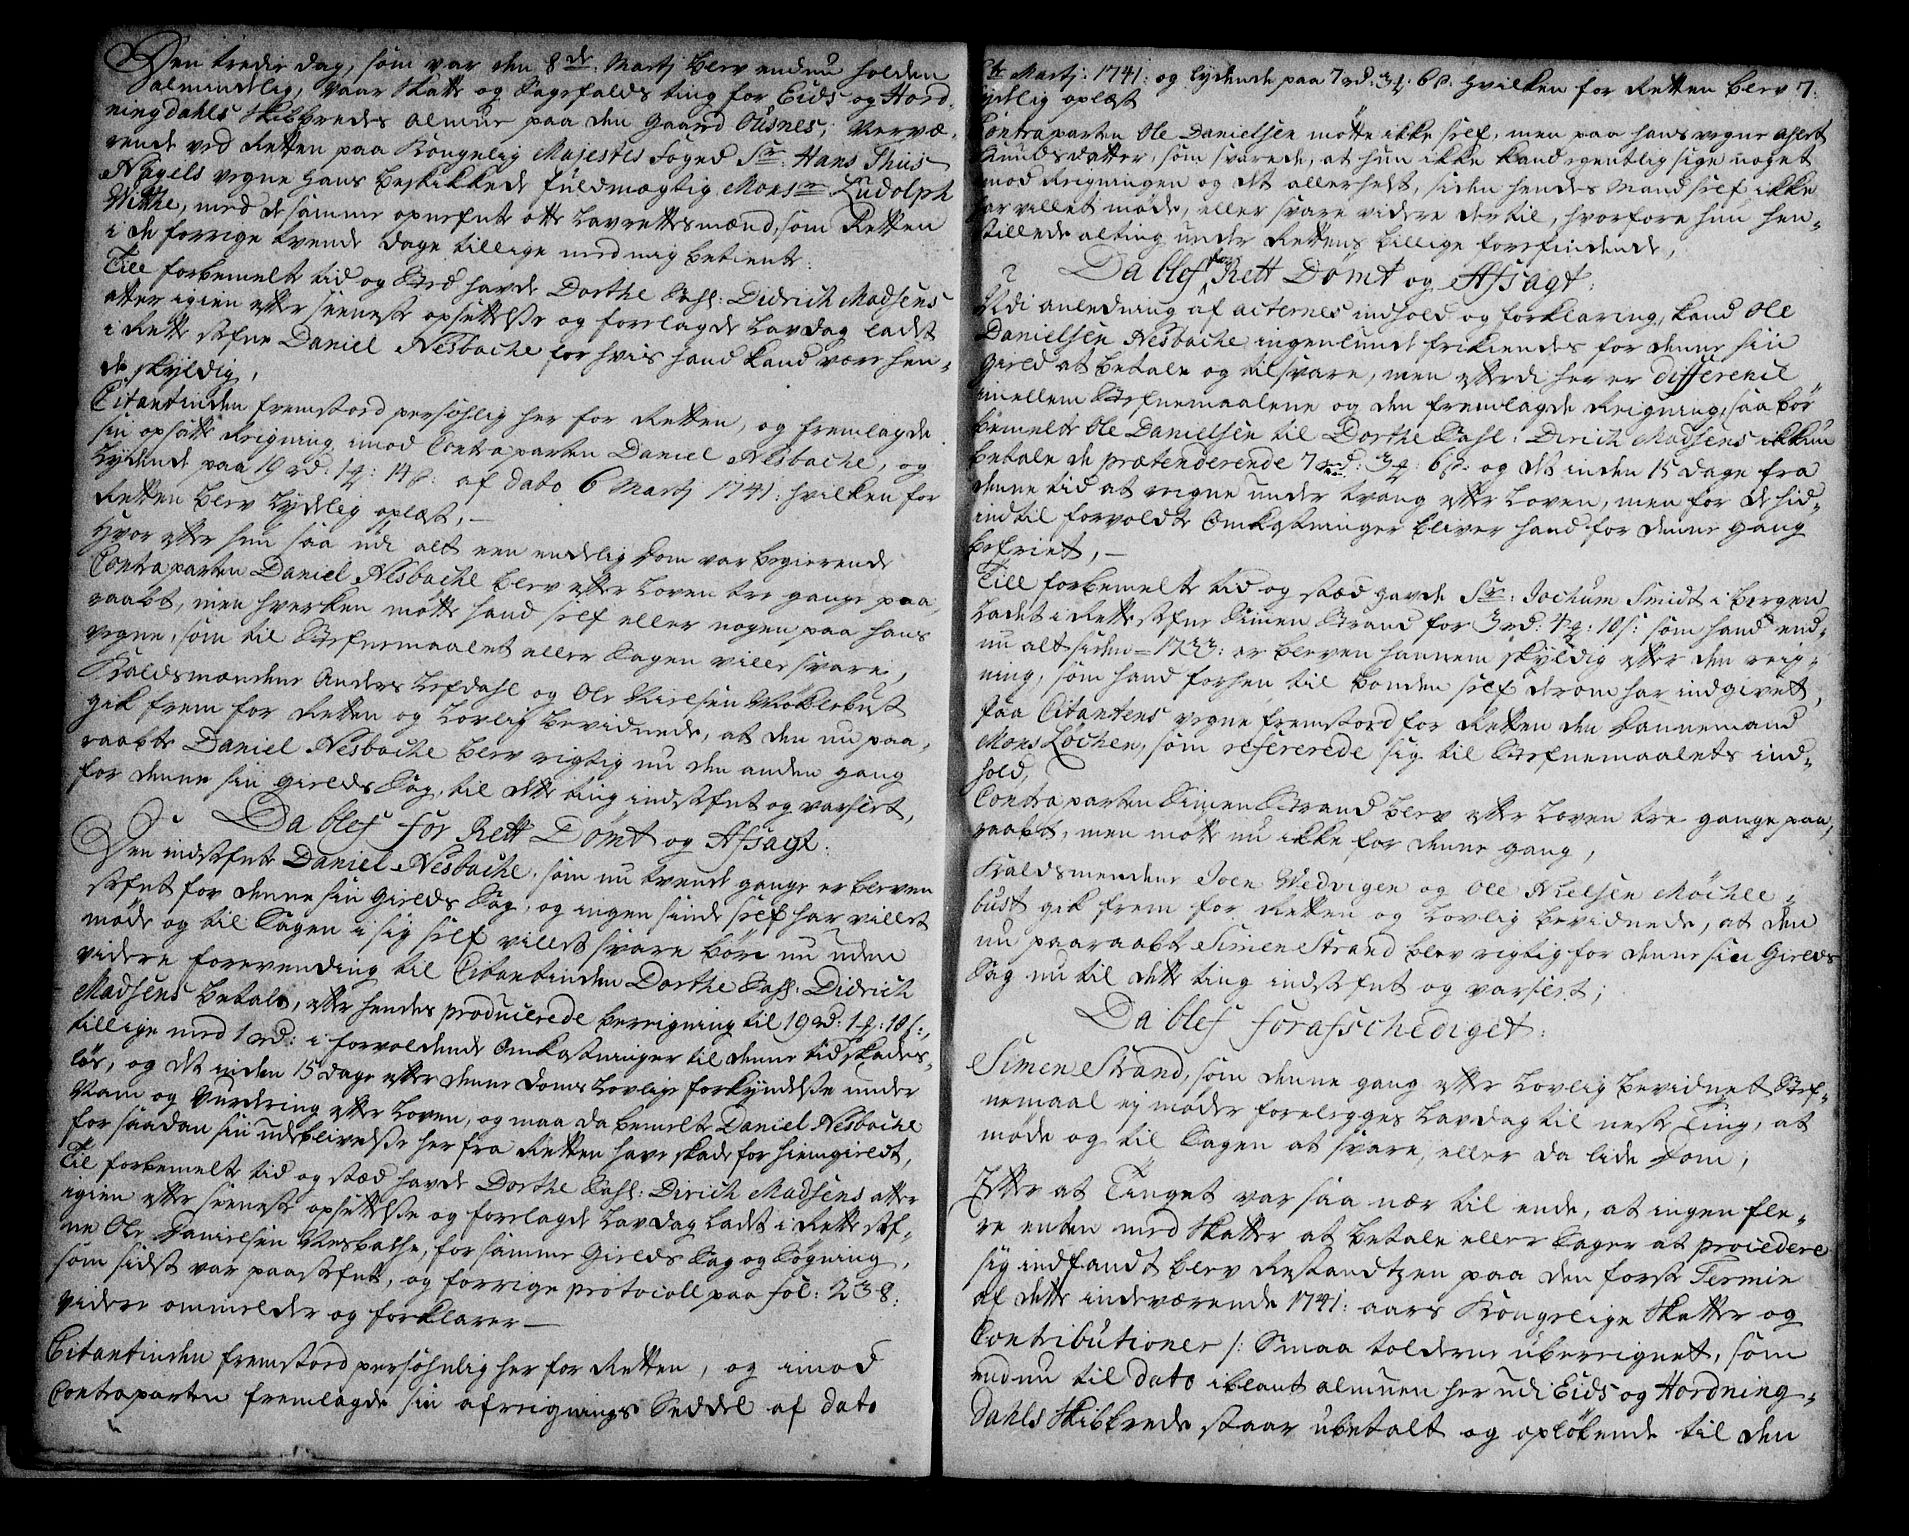 Den tredie dag, som var den 8de Martj blev endnu holden
almindelig, Vaar Skatte og Sagefalds ting for Eids og Hord-
ningdahls Skibbredes almue paa den Gaard Ousnes, Nervæ-
rende ved Retten paa Kongelig Majestes Foged Sr. Hans Thiis
Nagels vegne hans beskikkede fuldmægtig Monsr. Ludolph
Withe, med de samme opnefnte otte Laurettesmænd, som Retten
i de forrige tvende dage tillige med mig betiente.
Till forbemelte tid og Sted havde Dorthe Sahl: Didrich Madsens
atter igien efter seeneste opsettelse og forelagde Lavdag ladet
i Rette stefne Daniel Nesbache for hvis hand kand være hen-
de skyldig,
Citantinden fremstoed persohnlig her for Retten, og fremlagde
sin opsatte Reigning imod Contraparten Daniel Nesbache, og
Lydende paa 19 rd: 1 q: 14 s: af dato 6 Martj 1741: hvilken for
Retten blev Lydelig oplæst, —
Hvor efter hun saa udi alt een endelig dom var begierende
Contraparten Daniel Nesbache blev efter Loven tre gange paa-
raabt, men hverken møtte hand self eller nogen paa hans
vegne, som til Stefnemaalet eller Sagen ville svare,
Kaldsmændene Anders Lefdahl og Ole Nielsen Møklebust
gik frem for Retten og Lovlig bevidnede, at den nu paa-
raabte Daniel Nesbache blev rigtig nu den anden gang
for denne sin Gields Sag, til dette ting indstefnt og varslet,
Da blef for Rett Dømt og Afsagt:
Den indstefnte Daniel Nesbache, som nu tvende gange er bleven
stefnt for denne sin Gields Sag, og ingen sinde self har villet
møde og til Sagen i sig self villet svare bør nu uden
videre forevending til Citantinden Dorthe Sahl: Didrich
Madsens betale, efter hendes producerede bereigning til 19 rd: 1 q: 10 s:,
tillige med 1 rd: i forvoldende Omkostninger til denne tid skades-
løs, og det inden 15 dage efter denne doms Lovlige forkyndelse under
Nam og Vurdering efter Loven, og maa da bemelte Daniel Nesbache
for saadan sin udeblivelse her fra Retten have skade for hiemgieldt,
Til forbemelte tid og stæd havde Dorthe Sahl: Dirich Madsens atter
igien efter seeneste opsettelse og forelagde Lavdag ladet i Rette stef-
ne Ole Danielsen Nesbache, for samme Gields Sag og Søgning,
som sidst var paastefnt, og forrige protocoll paa fol: 238:
videre ommelder og forklarer —
Citantinden fremstoed persohnlig her for Retten, og imod
Contraparten fremlagde sin afreignings Seddel af dato
Martj: 1741: og lydende paa 7 rd: 3 q: 6 s: hvilken for Retten blev 7.
lydelig oplæst
Contraparten Ole Danielsen møtte ikke self, men paa hans vegne
Knudsdatter, som svarede, at hun ikke kand egentlig sige noget
imod Reigningen og det allerhelst, siden hendes Mand self ikke
har villet møde, eller svare videre der til, hvorfore hun hen-
stillede alting under Rettens billige forefindende,
Da blef for Rett Dømt og Afsagt:
Udi anledning af acternes indhold og forklaring, kand Ole
Danielsen Nesbache ingenlunde frikiendes for denne sin
Gield at betale og tilsvare, men efterdi her er differenil
imellem Stefnemaalene og den fremlagde Reigning, saa bør
bemelte Ole Danielsen til Dorthe Sahl: Dirich Madsens ikkun
betale de prætenderende 7 rd: 3 q: 6 s: og det inden 15 dage fra
denne tid at reigne under tvang efter Loven, men for de hid-
indtil forvoldte Omkostninger bliver hand for denne gang
befriet, —
Till forbemelte tid og stæd havde Sr: Jochum Smidt i bergen
Ladet i Rette stefne Simen Strand for 3 rd: 4 q: 10 s: som hand end-
nu alt siden 1733: er bleven hannem skyldig efter den reig-
ning, som hand forhen til bonden self derom har indgivet,
paa Citantens vegne fremstoed for Retten den dannemand
Mons Løchen, som refererede sig til Stefnemaalets ind-
hold,
Contraparten Simen Strand blev efter Loven tre gange paa-
raabt, men møtte nu ikke for denne gang,
Kaldsmendene Joen Wedvigen og Ole Nielsen Møchle-
bust gik frem for Retten og Lovlig bevidnede, at den
nu paaraabt Simen Strand blev rigtig for denne sin Gields
Sag nu til dette ting indstefnt og varslet;
Da blef forafschediget:
Simen Strand, som denne gang efter Lovlig bevidnet Stef-
nemaal ej møder forelegges Lavdag til neste Ting, at
møde og til Sagen at svare, eller da lide Dom,
Efter at Tinget var saa nær til ende, at ingen fle-
re enten med Skatter at betale eller Sager at procedere
sig indfandt blev Restandtzen paa den første Termin
af dette indeværende 1741: aars Kongelige Skatter og
Contributioner /: Smaa tolderne ubereignet, som
endnu til dato iblant almuen her udi Eids og Hordning-
dahls Skibbrede staar ubetalt og opløbende til den